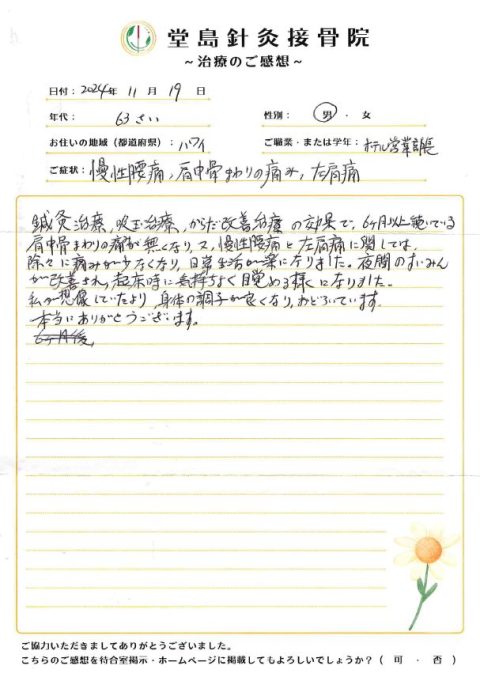 堂島針灸接骨院
~治療のご感想~
日付: 2024年 11月 19日
年代: 63さい 性別: 男 ・ 女
お住いの地域(都道府県): ハワイ ご職業・または学年: ホテル営業部長
ご症状: 慢性腰痛, 肩甲骨まわりの痛み, 左肩痛
鍼灸治療, 吸玉治療, からだ改善治療の効果で, 6ヶ月以上続いている
肩甲骨まわりの痛が無くなり, 又, 慢性腰痛と左肩痛に関しては,
除々に痛みが少なくなり, 日常生活が楽になりました。夜間のすいみん
が改善され, 起床時に気持ちよく目覚める様になりました。
私が想像していたより, 身体の調子が良くなり, おどろいています。
本当にありがとうございます。
6ヶ月後,
ご協力いただきましてありがとうございました。
こちらのご感想を待合室掲示・ホームページに掲載してもよろしいでしょうか?( 可 ・ 否 )